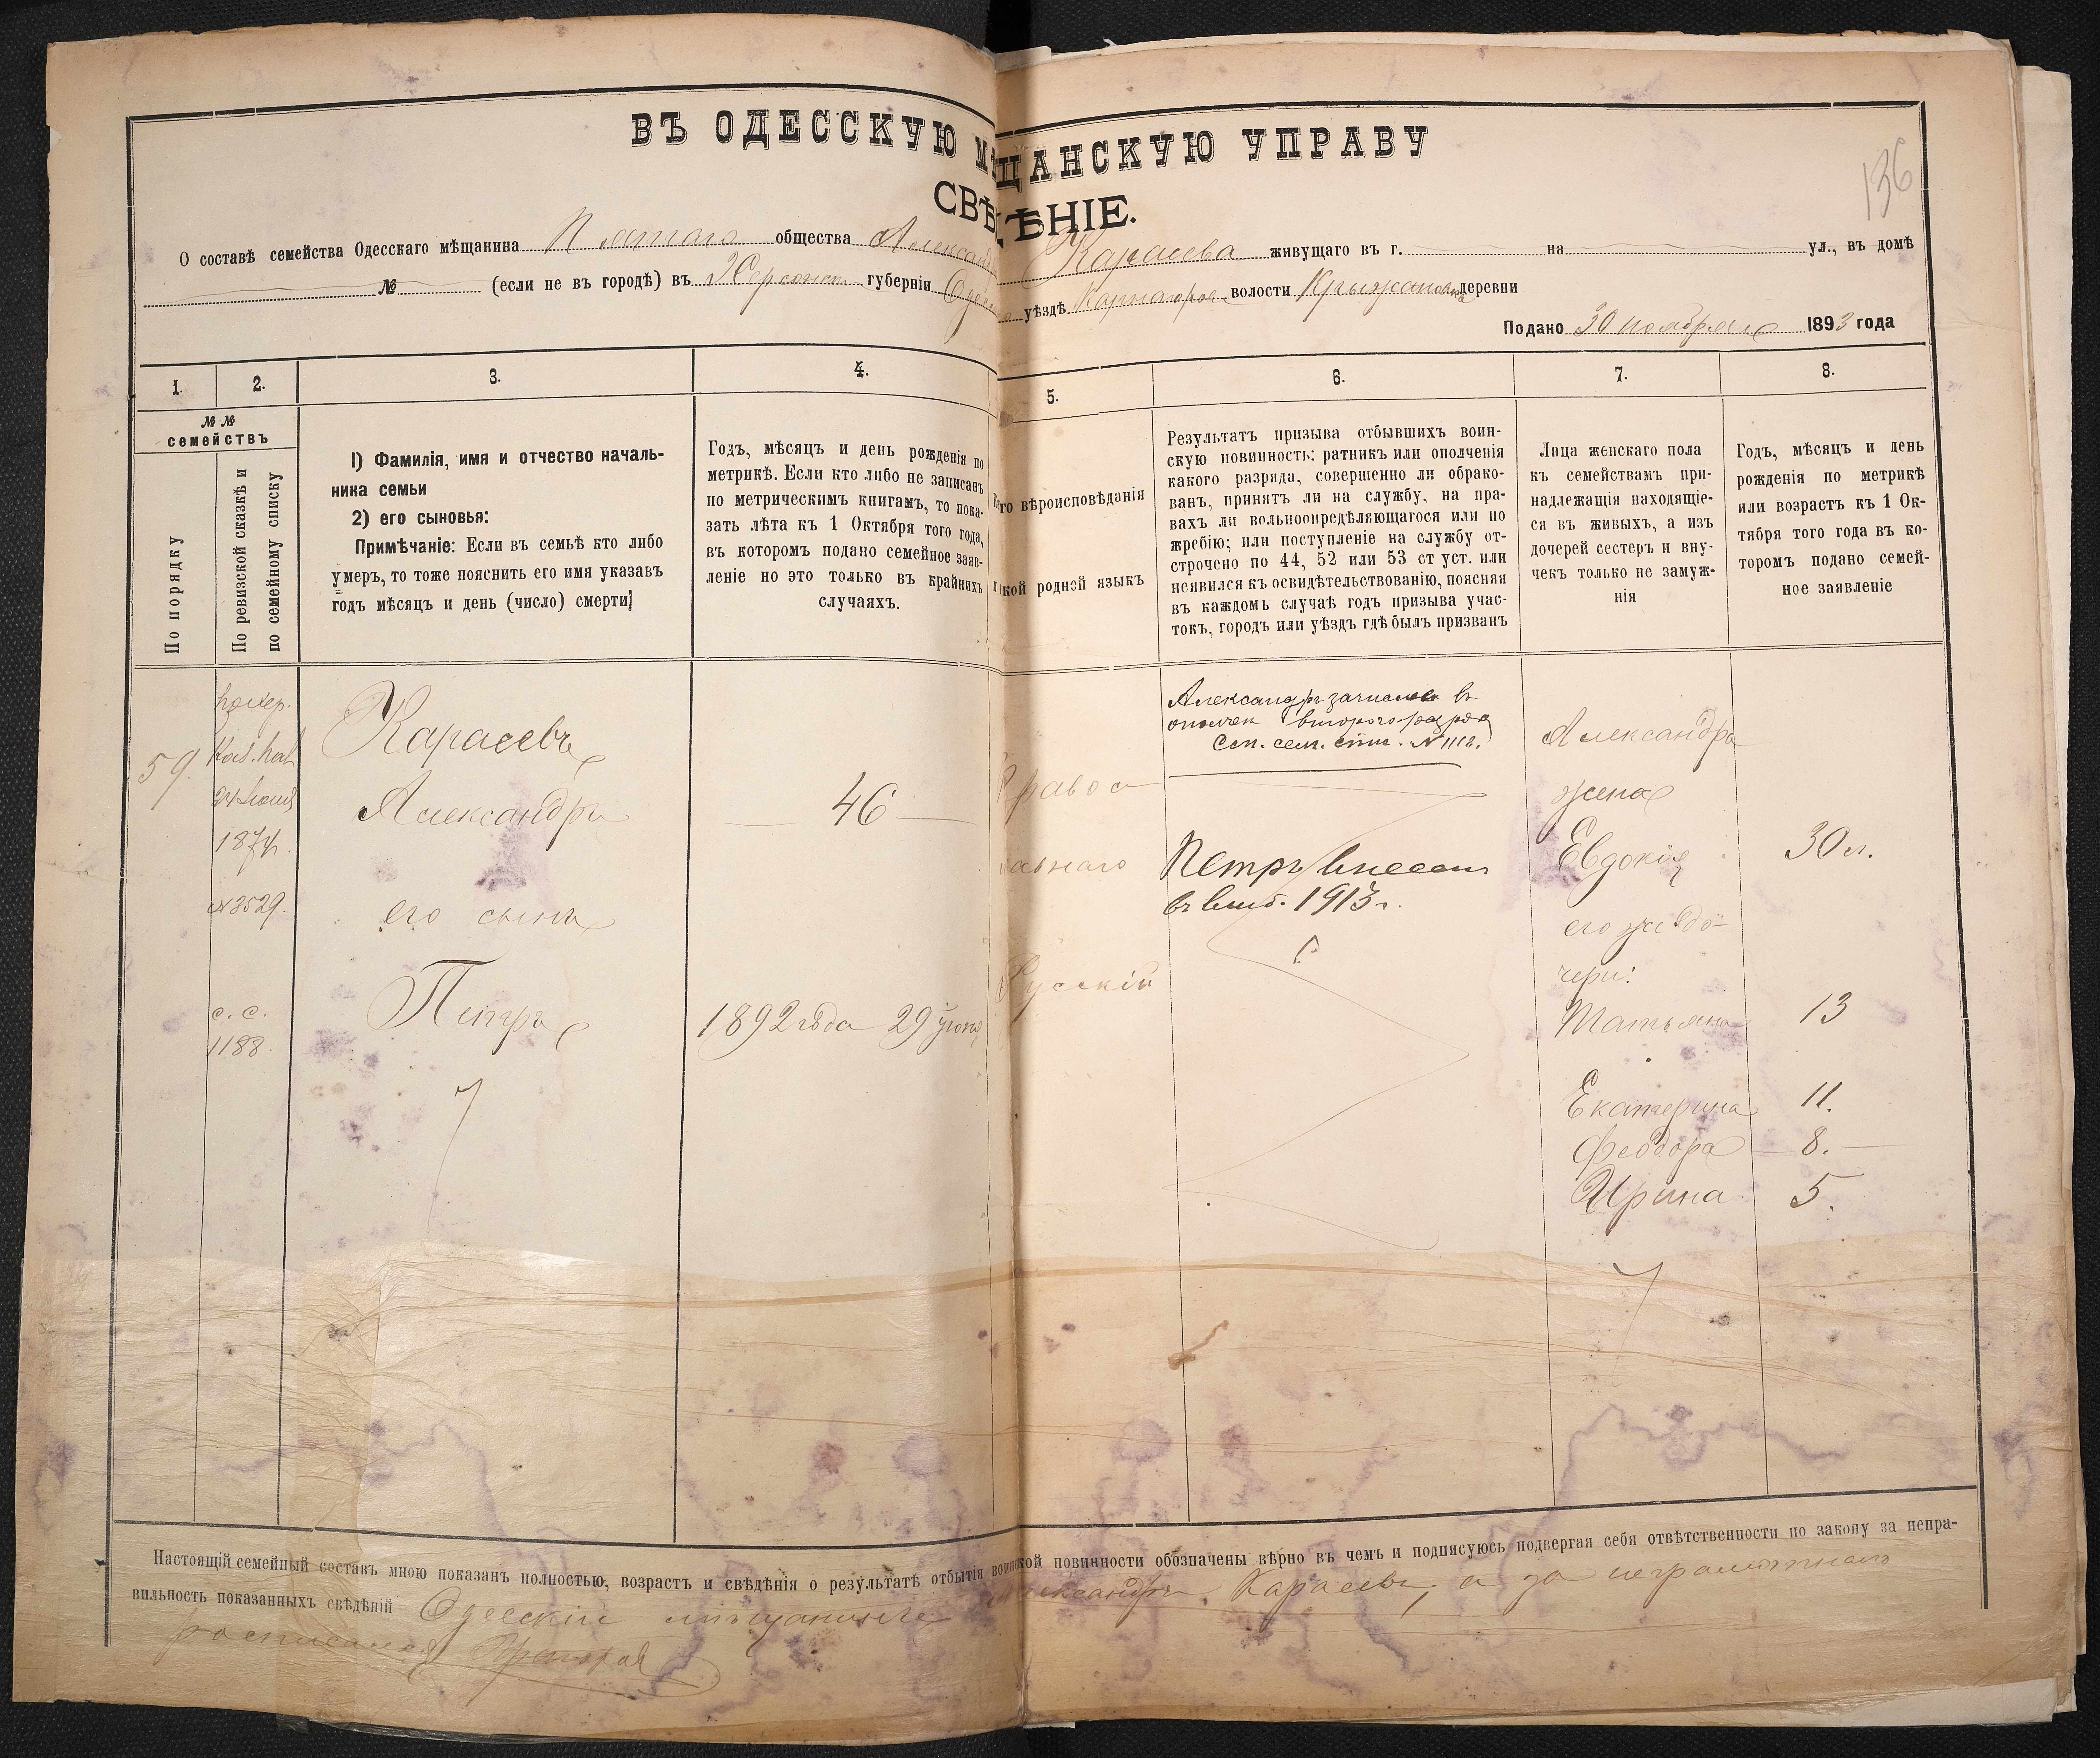 ВЪ ОДЕССКУЮ МѢЩАНСКУЮ УПРАВУ
136
СВѢДѢНІЕ.
О составѣ семейства Одесскаго мѣщанина Пятаго общества Александра Карасева живущаго въ г. на ул., въ домѣ
№ (если не въ городѣ) въ Херсонск. губерніи уѣздѣ волости Крыжановка деревни
Подано 30 ноября 1893 года
1.
2.
3.
4.
5.
6.
7.
8.
№ №
семействъ
По порядку
По ревизской сказкѣ и
по семейному списку
1) Фамилія, имя и отчество началь-
ника семьи
2) его сыновья:
Примѣчаніе: Если въ семьѣ кто либо
умеръ, то тоже пояснить его имя указавъ
годъ мѣсяцъ и день (число) смерти
Годъ, мѣсяцъ и день рожденія по
метрикѣ. Если кто либо не записанъ
по метрическимъ книгамъ, то пока-
зать лѣта къ 1 Октября того года,
въ которомъ подано семейное заяв-
леніе но это только въ крайнихъ
случаяхъ.
вѣроисповѣданія
родной языкъ
Результатъ призыва отбывшихъ воин-
скую повинность: ратникъ или ополченія
какого разряда, совершенно ли обрако-
ванъ, принятъ ли на службу, на пра-
вахъ ли вольноопредѣляющагося или по
жребію; или поступленіе на службу от-
строчено по 44, 52 или 53 ст уст. или
неявился къ освидѣтельствованію, поясняя
въ каждомъ случаѣ годъ призыва учас-
токъ, городъ или уѣздъ гдѣ былъ призванъ
Лица женскаго пола
къ семействамъ при-
надлежащія находящіе-
ся въ живыхъ, а изъ
дочерей сестеръ и вну-
чекъ только не замуж-
нія
Годъ, мѣсяцъ и день
рожденія по метрикѣ
или возрастъ къ 1 Ок-
тября того года въ ко-
торомъ подано семей-
ное заявленіе
59.
24 Іюня
1874.
№ 3529.
с. с.
1188.
Карасевъ
Александръ
его сынъ
Петръ
46
1892 года 29 Іюня
Правос
лавнаго
Русскій
Александръ зачисленъ въ
ополчен второго разряда
Петръ внесенъ
въ 1913 г.
Александра
жена
Евдокія
30 л.
его же до-
чери:
Татьяна
13
Екатерина
11.
Феодора
8.
Ирина
5.
Настоящій семейный составъ мною показанъ полностью, возрастъ и свѣдѣнія о результатѣ отбытія воинской повинности обозначены вѣрно въ чемъ и подписуюсь подвергая себя отвѣтственности по закону за непра-
вильность показанныхъ свѣдѣній Одесскій мѣщанинъ Александръ Карасевъ, а за неграмотнаго
росписался